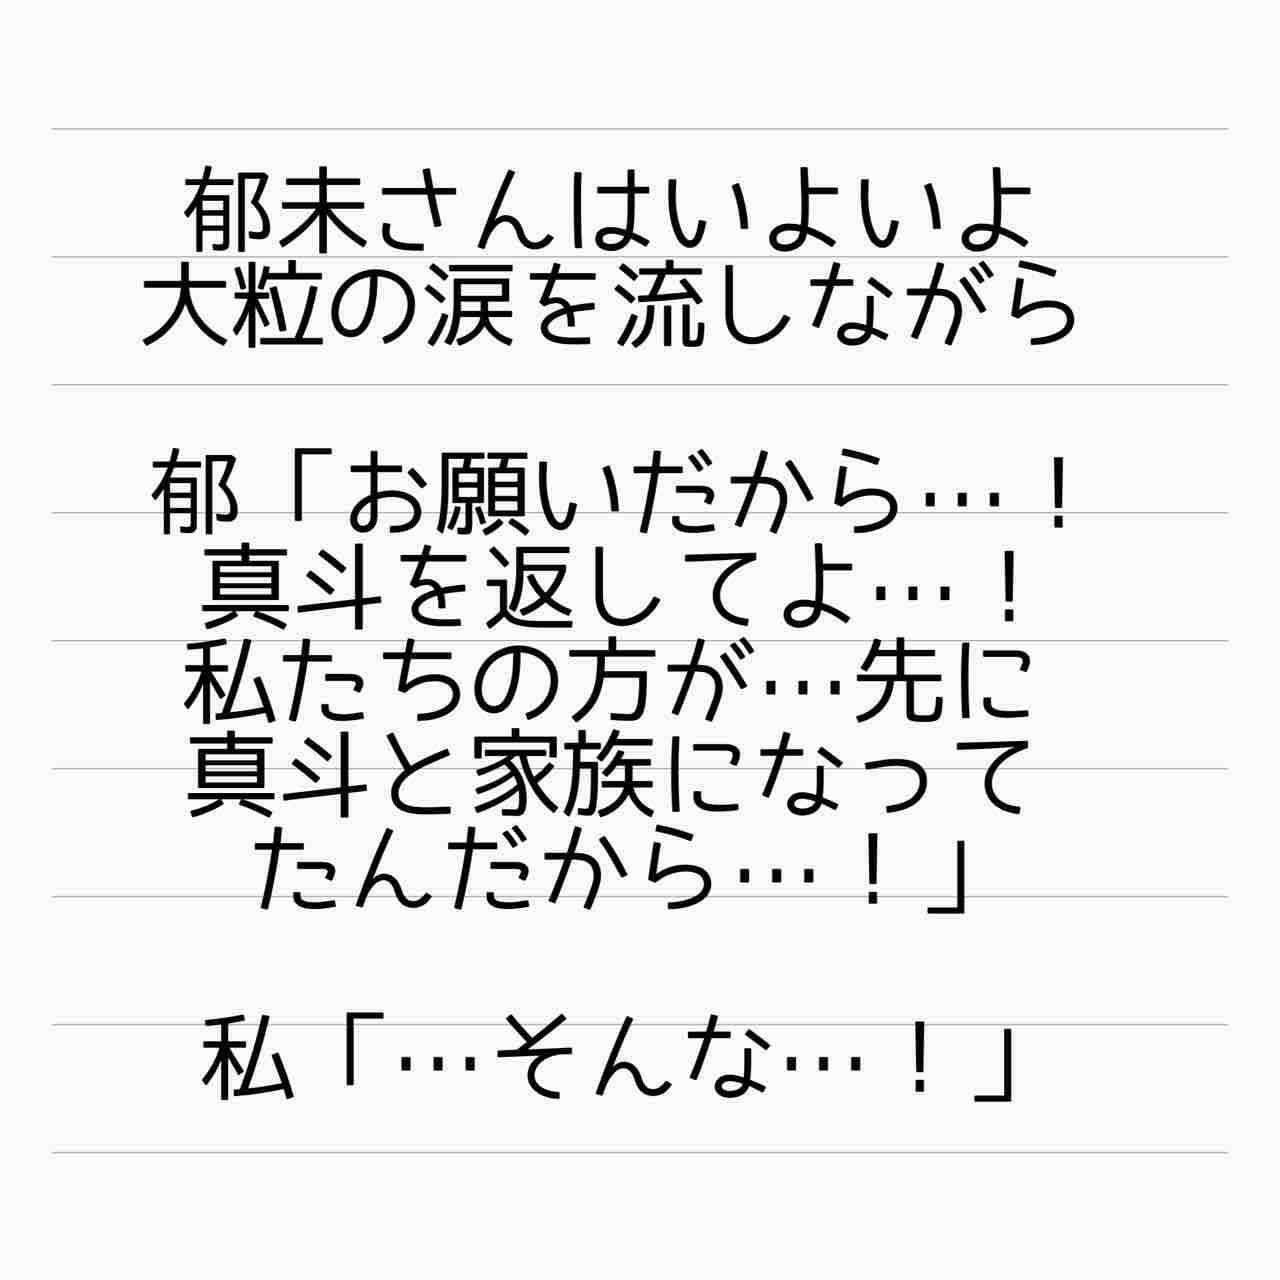 郁未さんはいよいよ
大粒の涙を流しながら
郁「お願いだから…！
真斗を返してよ…！
私たちの方が…先に
真斗と家族になって
たんだから…！」
私「…そんな…！」